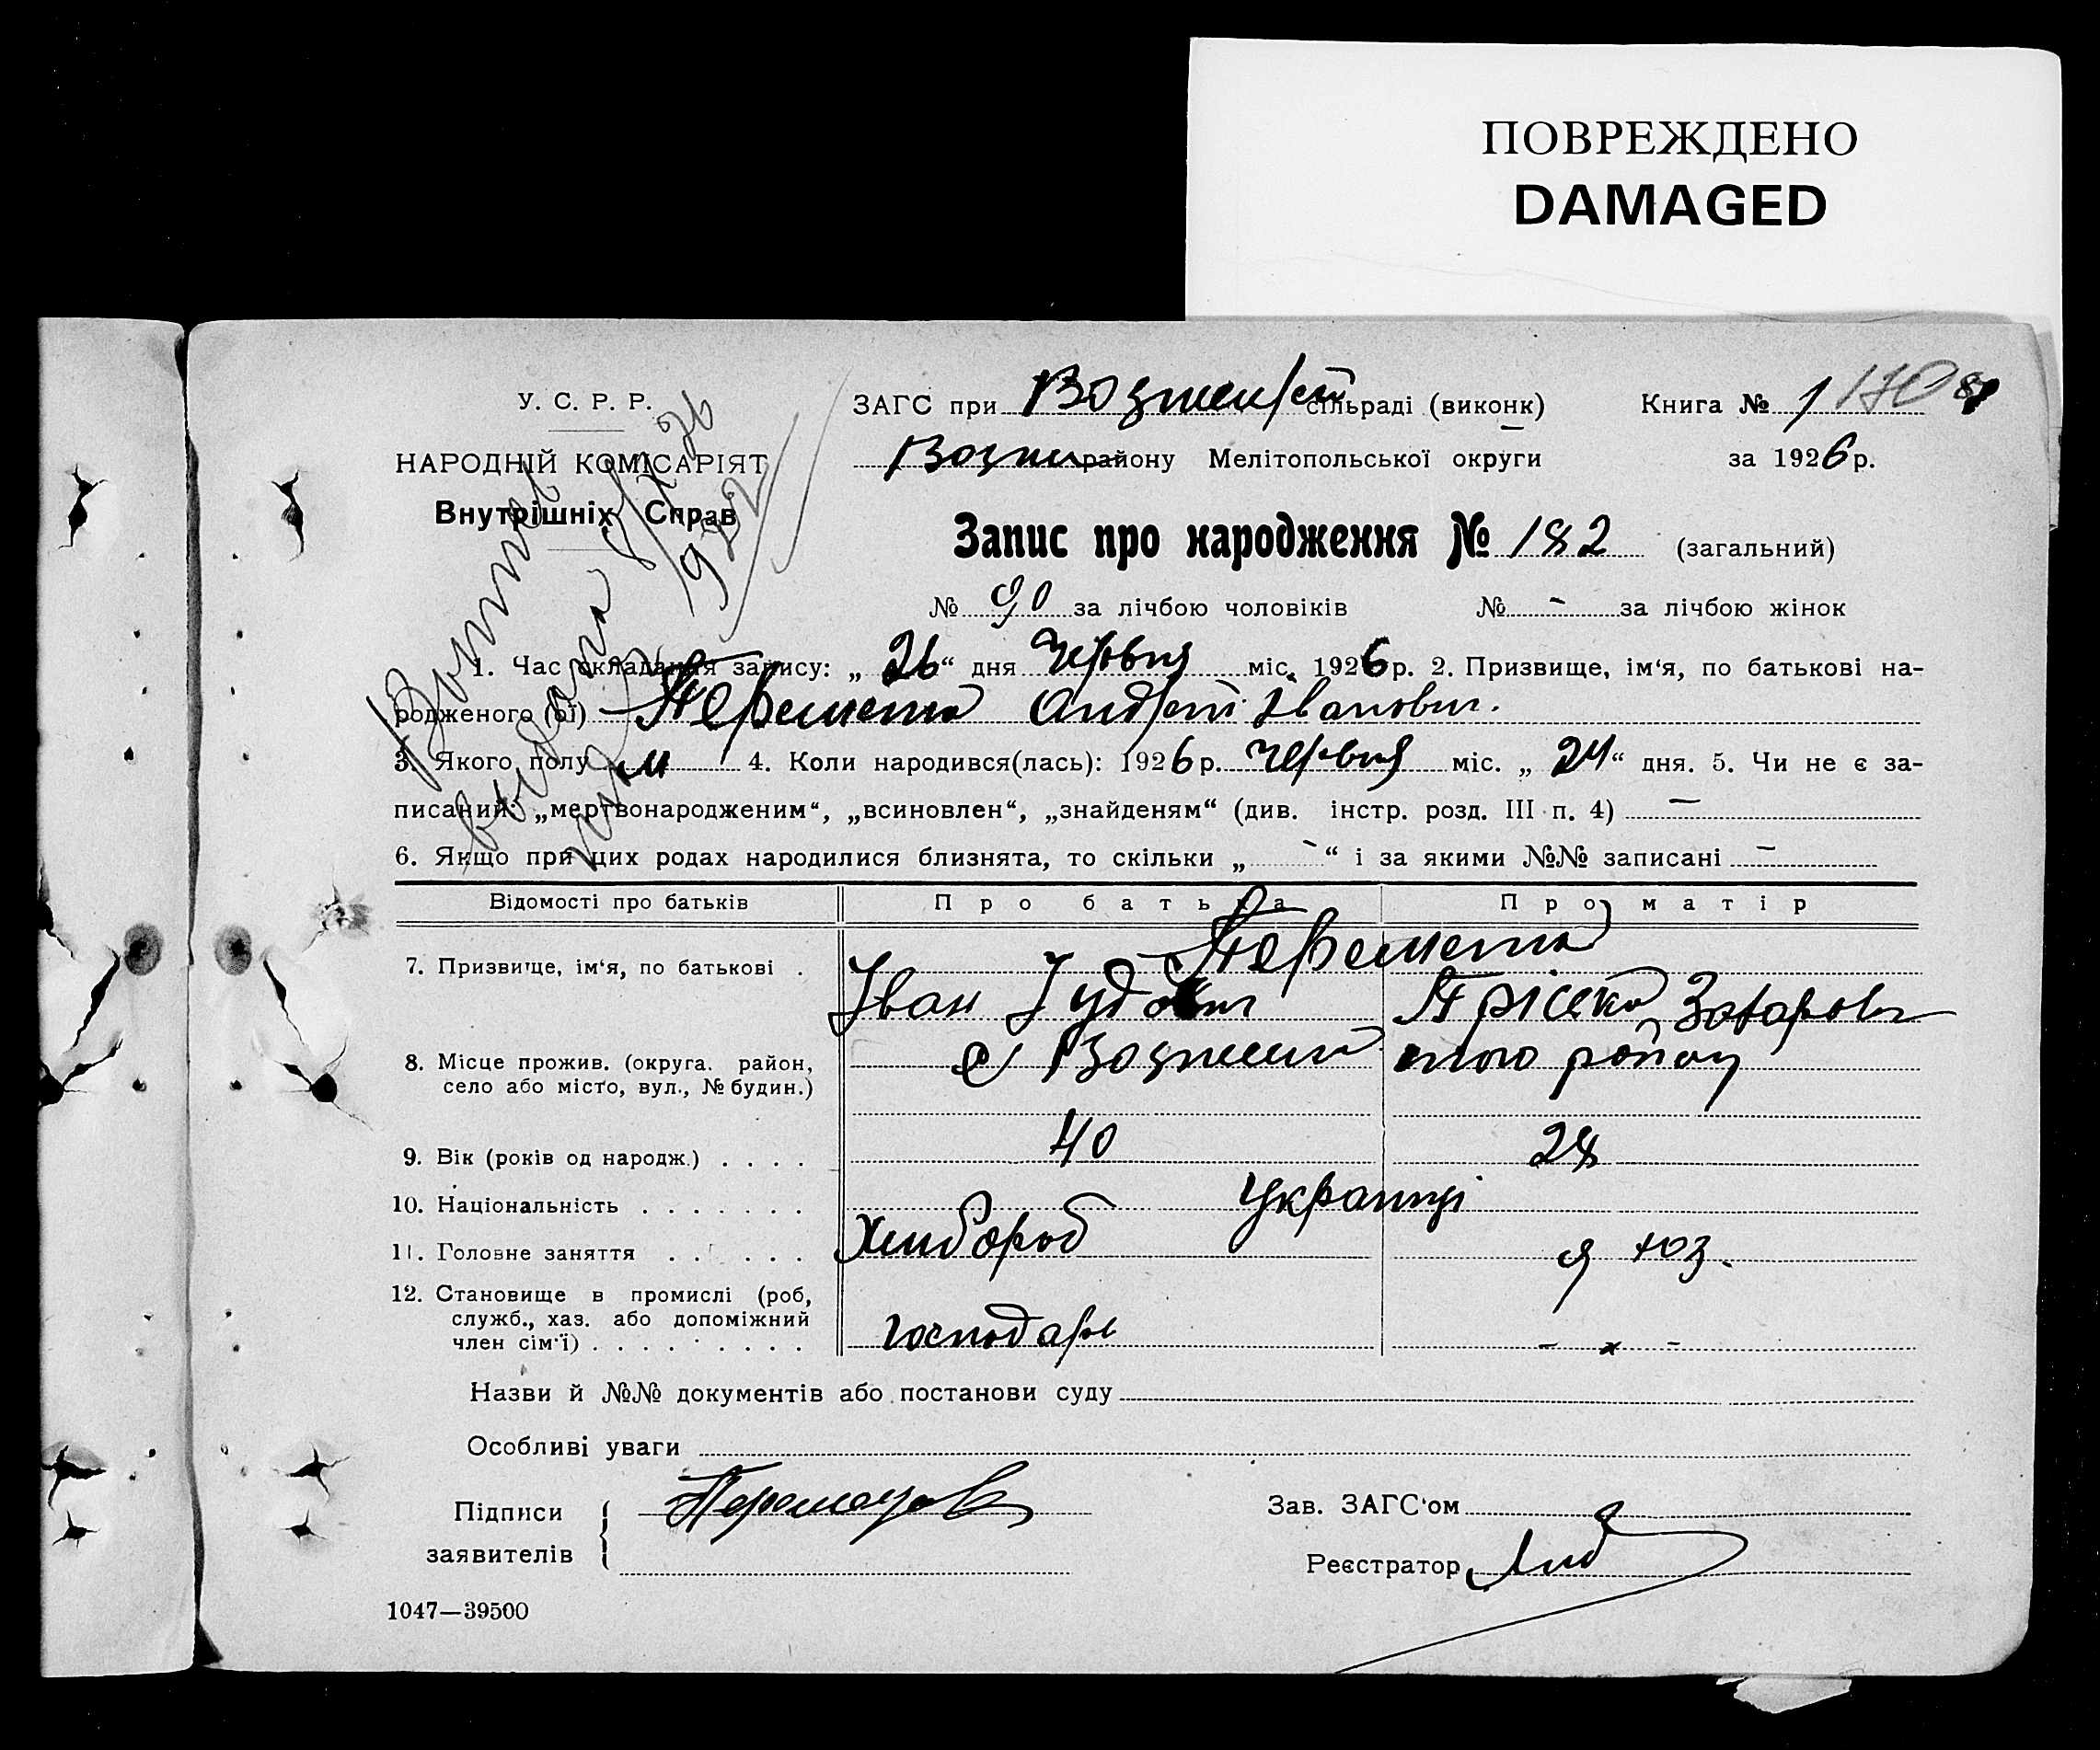 ПОВРЕЖДЕНО
DAMAGED
У. С. Р. Р.
НАРОДНІЙ КОМІСАРІЯТ
Внутрішніх Справ
ЗАГС при сільраді (виконк)
Книга № 1 170
району Мелітопольської округи
за 1926 р.
Запис про народження № 182 (загальний)
№ 90 за лічбою чоловіків № - за лічбою жінок
1. Час складання запису: „ 26 “ дня червня міс. 1926 р. 2. Призвище, ім‘я, по батькові на-
родженого (ої) Андрей Іванович.
3. Якого полу м 4. Коли народився(лась): 1926 р. червня міс. „ 24 “ дня. 5. Чи не є за-
писаний: „мертвонародженим“, „всиновлен“, „знайденям“ (див. інстр. розд. III п. 4) —
6. Якщо при цих родах народилися близнята, то скільки „ - “ і за якими №№ записані -
Відомості про батьків Про батька Про матір
7. Призвище, ім‘я, по батькові .
Іван Іудович
8. Місце прожив. (округа. район,
село або місто, вул., № будин.)
с того району
9. Вік (років од народж.) . . . . 40 28
10. Національність . . . . . . . Українці
11. Головне заняття . . . . . . Хлибороб
12. Становище в промислі (роб,
служб., хаз. або допоміжний
член сім‘ї) . . . . . . . . . господарь - х -
Назви й №№ документів або постанови суду
Особливі уваги
Підписи
заявителів
Зав. ЗАГС‘ом
Реєстратор
1047—39500